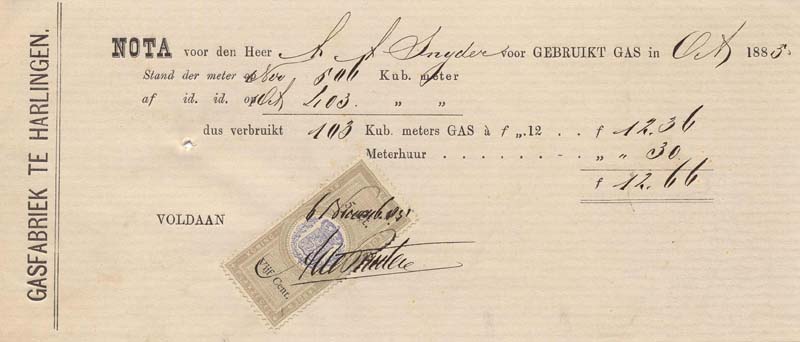 GASFABRIEK TE HARLINGEN.
NOTA voor den Heer Snyder voor GEBRUIKT GAS in Oct 1885
Stand der meter op Nov 506 Kub. meter
af id. id. op Oct 403. „ „
dus verbruikt 103 Kub. meters GAS à f „.12 . . f 12.36
Meterhuur . . . . . . . - „ „ 30
f 12.66
VOLDAAN 6 85
Vijf Cent.